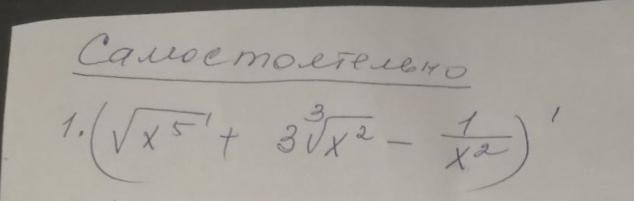 Самостоятельно
1. (√x⁵ + 3∛x² − 1/x²)′